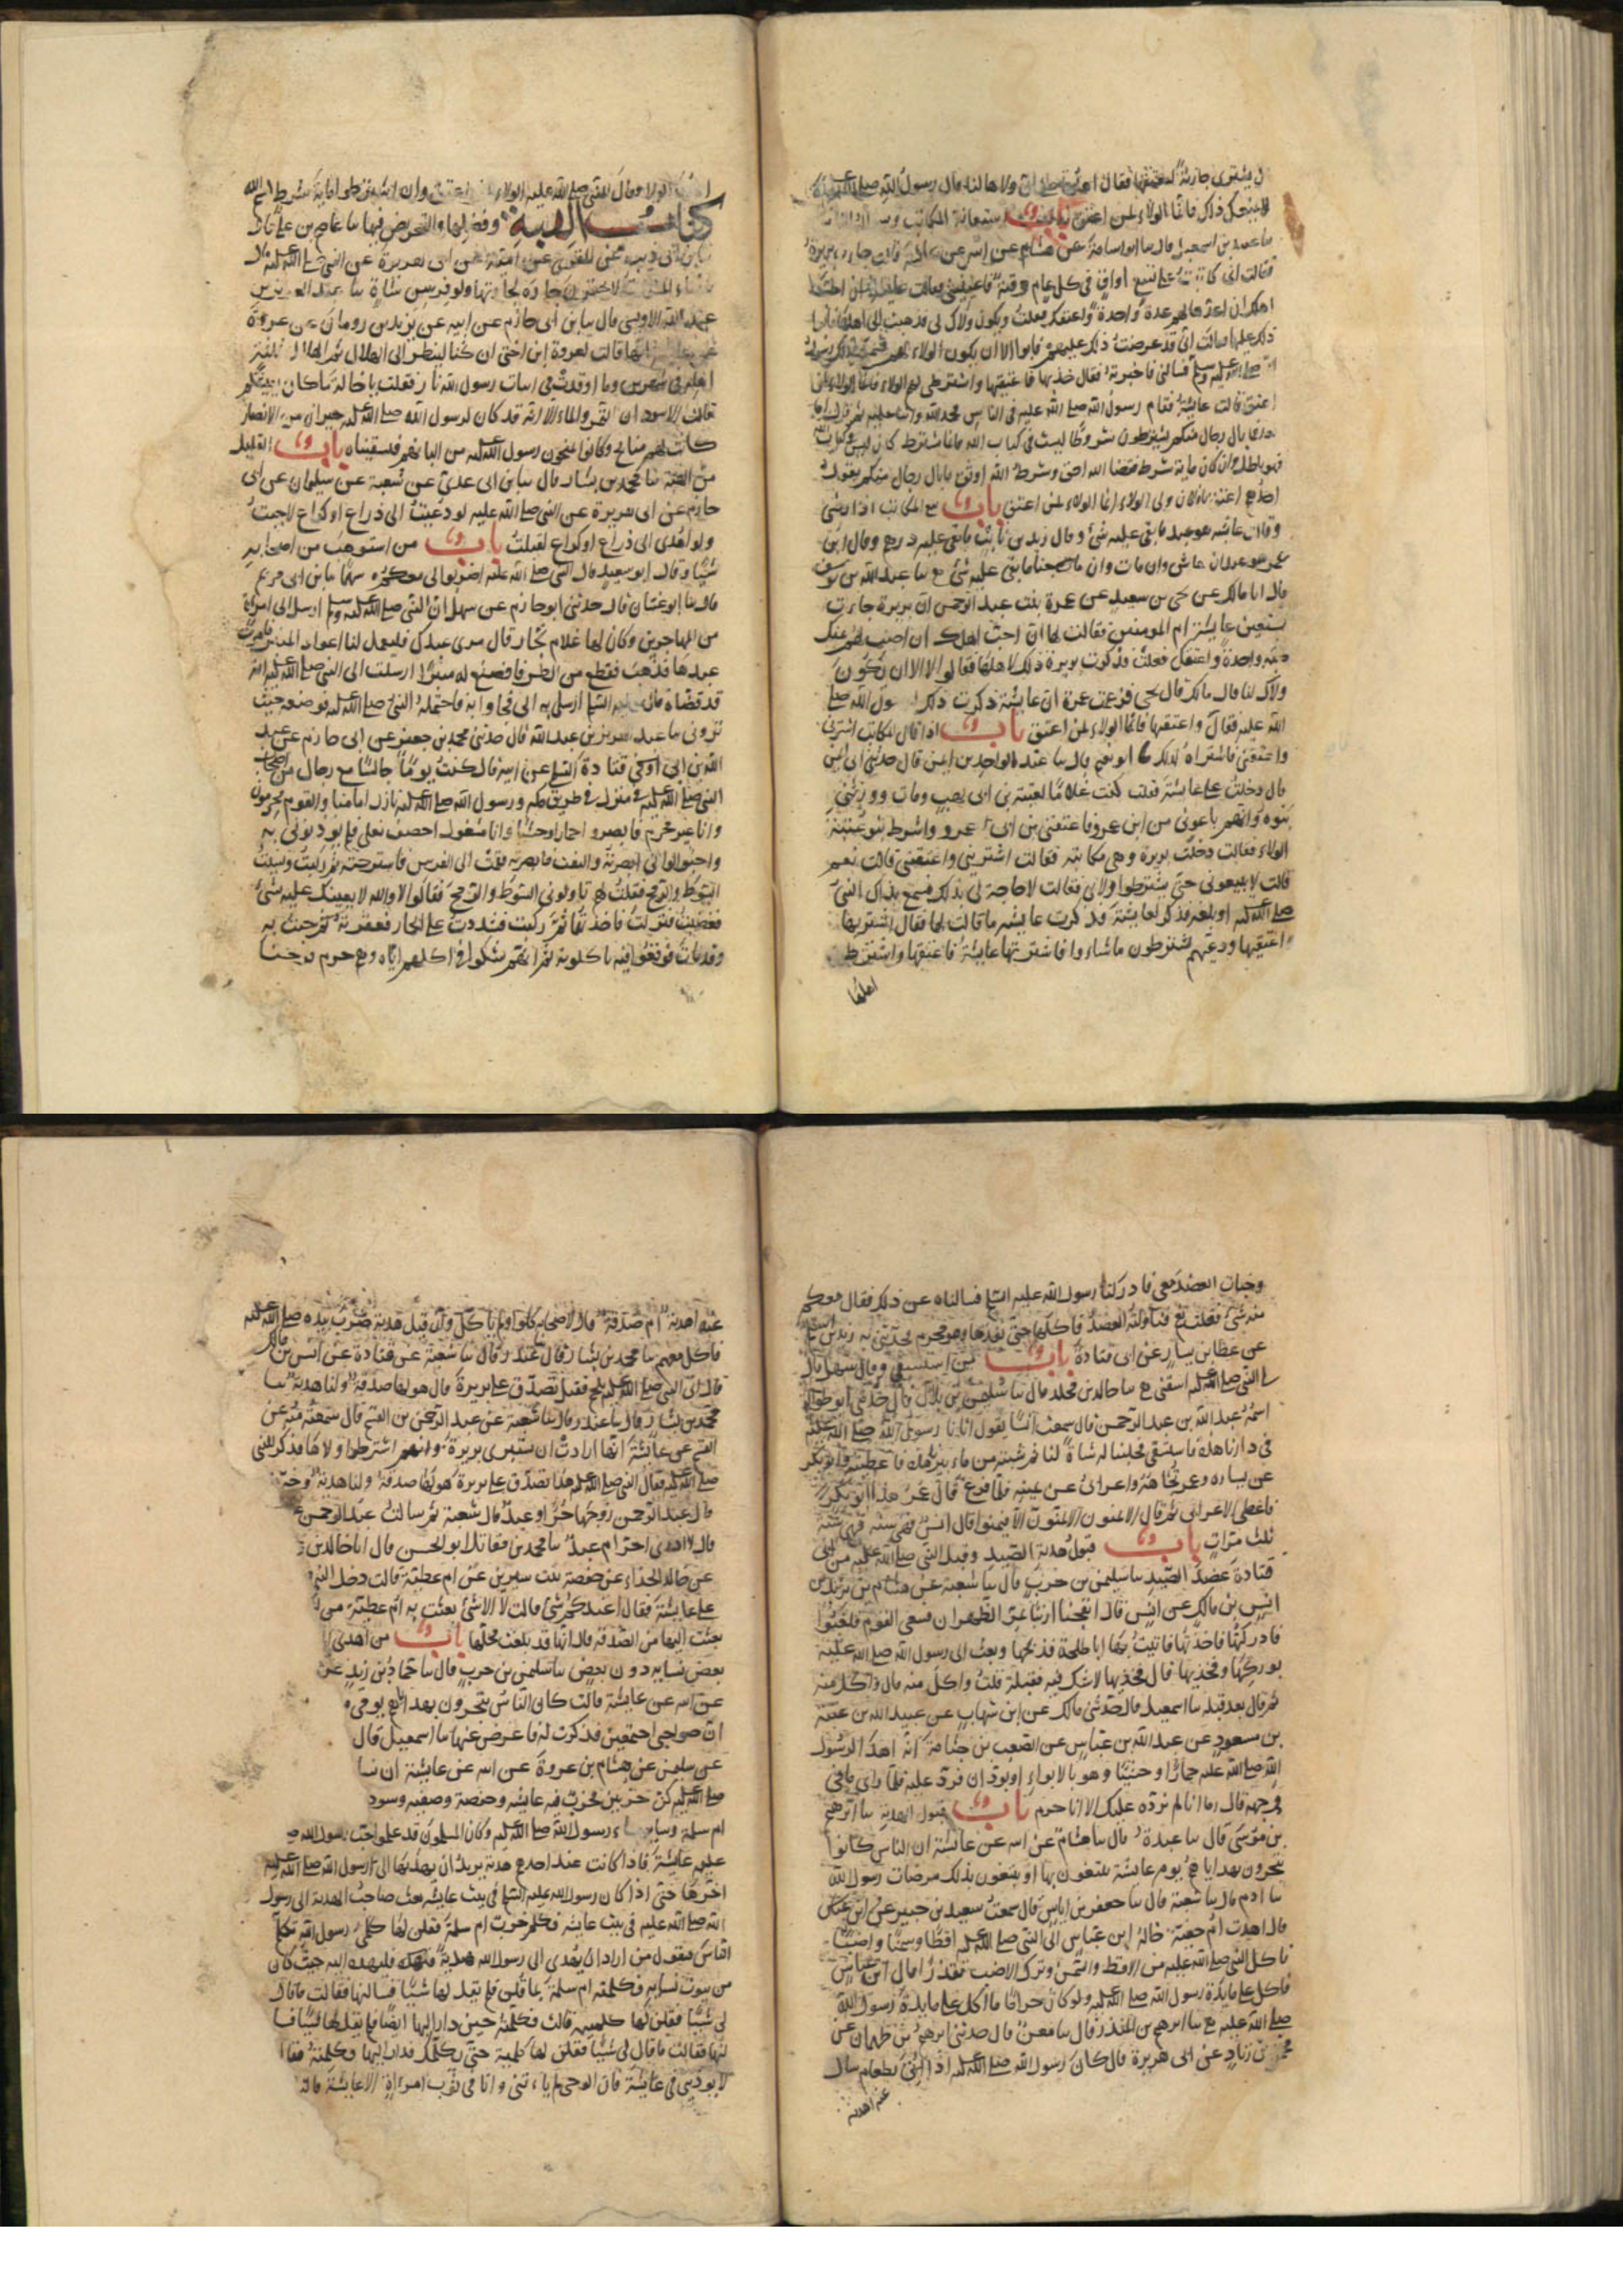 ان يشترى جارية لتعتقها فقال اهلها على ان ولاها لنا قال رسول الله صلى الله عليه
لا يمنعك ذاك فانما الولاء لمن اعتق باب استعانة المكاتب
سا عبيد بن اسمعيل قال سا ابو اسامة عن هشام عن ابيه عن عائشة قالت جاءت بريرة
فقالت انى كاتبت على تسع اواق فى كل عام وقية فاعينينى فقالت عايشة ان احب
اهلك ان اعدها لهم عدة واحدة واعتقك فعلت ويكون ولاك لى فذهبت الى اهلها فابوا
ذلك عليها فقالت انى قد عرضت ذلك عليهم فابوا الا ان يكون الولاء لهم فسمع بذلك رسول
الله صلى الله عليه وسلم فسالنى فاخبرته فقال خذيها فاعتقيها واشترطى لهم الولاء فانما الولاء لمن
اعتق قالت عايشة فقام رسول الله صلى الله عليه فى الناس فحمد الله واثنا عليه ثم قال اما
بعد فما بال رجال منكم يشترطون شروطا ليست فى كتاب الله فايما شرط كان ليس فى كتاب الله
فهو باطل وان كان ماية شرط فقضا الله احق وشرط الله اوثق ما بال رجال منكم يقول
احدهم اعتق يا فلان ولى الولاء انما الولاء لمن اعتق باب بيع المكاتب اذا رضى
وقالت عايشه هو عبد ما بقى عليه شئ وقال زيد بن ثابت ما بقى عليه درهم وقال ابن
عمر هو عبد ان عاش وان مات وان جنا ما بقى عليه شئ سا عبد الله بن يوسف
قال انا مالك عن يحيى بن سعيد عن عمرة بنت عبد الرحمن ان بريرة جاءت
تستعين عايشة ام المومنين فقالت لها ان احب اهلك ان اصب لهم ثمنك
صبة واحدة واعتقك فعلت فذكرت بريرة ذلك لاهلها فقالوا لا الا ان يكون
ولاك لنا قال مالك قال يحيى فزعمت عمرة ان عايشة ذكرت ذلك لرسول الله صلى
الله عليه فقال واعتقيها فانما الولاء لمن اعتق باب اذا قال المكاتب اشترنى
واعتقنى فاشتراه لذلك سا ابو نعيم قال سا عبد الواحد بن ايمن قال حدثنى ابى ايمن
قال دخلت على عايشة فقلت كنت غلاما لعتبة بن ابى لهب ومات وورثنى
بنوه وانهم باعونى من ابن عمرو فاعتقنى بن ابى عمرو واشترط بنو عتبة
الولاء فقالت دخلت بريرة وهى مكاتبة فقالت اشترينى واعتقينى قالت نعم
قالت لا يبيعونى حتى يشترطوا ولاى فقالت لا حاجة لى بذلك فسمع بذاك النبى
صلى الله عليه او بلغه فذكر لعايشة فذكرت عايشه ما قالت لها فقال اشتريها
واعتقيها ودعيهم يشترطون ما شاءوا فاشترتها عايشة فاعتقتها واشترط
اهلها
اهلها الولاء فقال النبى صلى الله عليه الولاء لمن اعتق وان اشترطوا ماية شرط
كتاب الهبة وفضلها والتحريض فيها سا عاصم بن على قال
سا بن ابى ذيب عن المقبرى عن ابيه عن ابى هريرة عن النبى صلى الله عليه قال
يا نساء المسلمات لا تحقرن جارة لجارتها ولو فرسن شاة سا عبد العزيز بن
عبد الله الاويسى قال سا بن ابى حازم عن ابيه عن يزيد بن رومان عن عروة
عن عايشة انها قالت لعروة ابن اختى ان كنا لينظر الى الهلال ثم الهلال ثلثة
اهلة فى شهرين وما اوقدت فى ابيات رسول الله نار فقلت يا خالة ما كان يعيشكم
قالت الاسودان التمر والماء الا انه قد كان لرسول الله صلى الله عليه جيران من الانصار
كانت لهم منايح وكانوا يمنحون رسول الله عليه من البانهم فيسقيناه باب القليل
من الهبة سا محمد بن بشار قال سا بن ابى عدى عن شعبة عن سليمان عن ابى
حازم عن ابى هريرة عن النبى صلى الله عليه لو دعيت الى ذراع او كراع لاجبت
ولو اهدى الى ذراع او كراع لقبلت باب من استوهب من اصحابه
شيئا وقال ابو سعيد قال النبى صلى الله عليه اضربوا لى معكم سهما سا بن ابى مريم
قال سا ابو غسان قال حدثنى ابو حازم عن سهل ان النبى صلى الله عليه وسلم ارسل الى امراة
من المهاجرين وكان لها غلام نجار قال مرى عبدك فليعمل لنا اعواد المنبر فامرت
عبدها فذهب فقطع من الطرفا فصنع له منبرا ارسلت الى النبى صلى الله عليه انه
قد قضاه قال عليه السلم ارسلى به الى فجاوا به فاحتمله النبى صلى الله عليه فوضعه حيث
ترون سا عبد العزيز بن عبد الله قال حدثنى محمد بن جعفر عن ابى حازم عن عبد
الله بن ابى قتادة السلمى عن ابيه قال كنت يوما جالسا مع رجال من اصحاب
النبى صلى الله عليه فى منزل فى طريق مكه ورسول الله صلى الله عليه نازل امامنا والقوم محرمون
وانا غير محرم فابصروا حمارا وحشيا وانا مشغول اخصف نعلى فلم يوذنونى به
واحبوا لو انى ابصرته والتفت فابصرته فقمت الى الفرس فاسرجته ثم ركبت ونسيت
السوط والرمح فقلت لهم ناولونى السوط والرمح فقالوا لا والله لا نعينك عليه بشئ
فغضبت فنزلت فاخذتهما ثم ركبت فشددت على الحمار فعقرته ثم جيت به
وقد مات فوقعوا فيه ياكلونه ثم انهم شكوا فى اكلهم اياه وهم حرم فرحنا
وخبات العضد معى فادركنا رسول الله عليه السلم فسالناه عن ذلك فقال معكم
منه شئ فقلت نعم فناولته العضد فاكلها حتى نفدها وهو محرم فحدثنى به زيد بن اسلم
عن عطا بن يسار عن ابى قتادة باب من استسقى وقال سهل قال
لى النبى صلى الله عليه اسقنى سا خالد بن مخلد قال سا سليمن بن بلال قال حدثنى ابو طوالة
اسمه عبد الله بن عبد الرحمن قال سمعت انسا يقول اتانا رسول الله صلى الله عليه
فى دارنا هذه فاستسقى فحلبنا له شاة لنا ثم شبته من ماء بئرنا هذه فاعطيته وابو بكر
عن يساره وعمر تجاهه واعرابى عن يمينه فلما فرغ قال عمر هذا ابو بكر
فاعطى الاعرابى ثم قال الايمنون الايمنون الا فيمنوا قال انس فهى سنة فهى سنة
ثلث مرات باب قبول هدية الصيد وقبل النبى صلى الله عليه من ابى
قتادة عضد الصيد سا سليمن بن حرب قال سا شعبة عن هشام بن زيد بن
انس بن مالك عن انس قال انفجنا ارنبا بمر الظهران فسعى القوم فلغبوا
فادركتها فاخذتها فاتيت بها ابا طلحة فذبحها وبعث الى رسول الله صلى الله عليه
بوركها وفخذيها قال فخذيها لا شك فيه فقبله قلت واكل منه قال واكل منه
ثم قال بعد قبله سا اسمعيل قال حدثنى مالك عن ابن شهاب عن عبيد الله بن عتبة
بن مسعود عن عبد الله بن عباس عن الصعب بن جثامة انه اهدا لرسول
الله صلى الله عليه حمارا وحشيا وهو بالابواء او بودان فرد عليه فلما راى ما فى
وجهه قال اما انا لم نرده عليك الا انا حرم باب قبول الهدية سا ابرهيم
بن موسى قال سا عبدة قال سا هشام عن ابيه عن عايشة ان الناس كانوا
يتحرون بهداياهم يوم عايشة يبتغون بها او يبتغون بذلك مرضات رسول الله
سا ادم قال سا شعبة قال سا جعفر بن اياس قال سمعت سعيد بن جبير عن ابن عباس
قال اهدت ام حفيد خالة ابن عباس الى النبى صلى الله عليه اقطا وسمنا واضبا
فاكل النبى صلى الله عليه من الاقط والسمن وترك الاضب تقذرا قال ابن عباس
فاكل على مايدة رسول الله صلى الله عليه ولو كان حراما ما اكل على مايدة رسول الله
صلى الله عليه سا ابرهيم بن المنذر قال سا معن قال حدثنى ابرهيم بن طهمان عن
محمد بن زياد عن ابى هريرة قال كان رسول الله صلى الله عليه اذا اتى بطعام سال
عنه اهدية
عنه اهدية ام صدقة قال لاصحابه كلوا ولم ياكل وان قيل هدية ضرب بيده صلى الله عليه
فاكل معهم سا محمد بن بشار قال غندر قال سا شعبة عن قتادة عن انس بن مالك
قال اتى النبى صلى الله عليه بلحم فقيل تصدق على بريرة قال هو لها صدقة ولنا هدية سا
محمد بن بشار قال سا غندر قال سا شعبة عن عبد الرحمن بن القسم قال سمعته منه عن
القسم عن عائشة انها ارادت ان تشترى بريرة وانهم اشترطوا ولاها فذكر للنبى
صلى الله عليه فقال النبى صلى الله عليه هذا تصدق على بريرة هو لها صدقة ولنا هدية وخيرت
قال عبد الرحمن زوجها حر او عبد قال شعبة ثم سالت عبد الرحمن
قال لا ادرى احر ام عبد سا محمد بن مقاتل ابو الحسن قال انا خالد بن
عن خالد الحذاء عن حفصة بنت سيرين عن ام عطية قالت دخل النبى
على عايشة فقال اعندكم شئ قالت لا الا شئ بعثت به ام عطية من
بعثت اليها من الصدقة قال انها قد بلغت محلها باب من اهدى
بعض نسايه دون بعض سا سليمن بن حرب قال سا حماد بن زيد عن
عن ابيه عن عايشة قالت كان الناس يتحرون بهداياهم يومى
ان صواحبى اجتمعن فذكرت له فاعرض عنها سا اسمعيل قال
عن سليمن عن هشام بن عروة عن ابيه عن عايشة ان نسا
صلى الله عليه كن حزبين فحزب فيه عايشه وحفصة وصفيه وسود
ام سلمة وساير نساء رسول الله صلى الله عليه وكان المسلمون قد علموا حب رسول الله
عليه عايشة فاذا كانت عند احدهم هدية يريد ان يهديها الى رسول الله صلى الله عليه
اخرها حتى اذا كان رسول الله عليه السلم فى بيت عايشه بعث صاحب الهدية الى رسول
الله صلى الله عليه فى بيت عايشة فكلم حزب ام سلمة فقلن لها كلمى رسول الله يكلم
الناس فيقول من اراد ان يهدى الى رسول الله هدية فليهده اليه حيث كان
من بيوت نسايه فكلمته ام سلمة بما قلن فلم يقل لها شيئا فسالنها فقالت ما قال
لى شيئا فقلن لها كلميه قالت فكلمته حين دار اليها ايضا فلم يقل لها شيئا فسا
لنها فقالت ما قال لى شيئا فقلن لها كلميه حتى يكلمك فدار اليها وكلمته فقال
لا توذينى فى عايشة فان الوحى لم ياتنى وانا فى ثوب امراة الا عايشة قالت